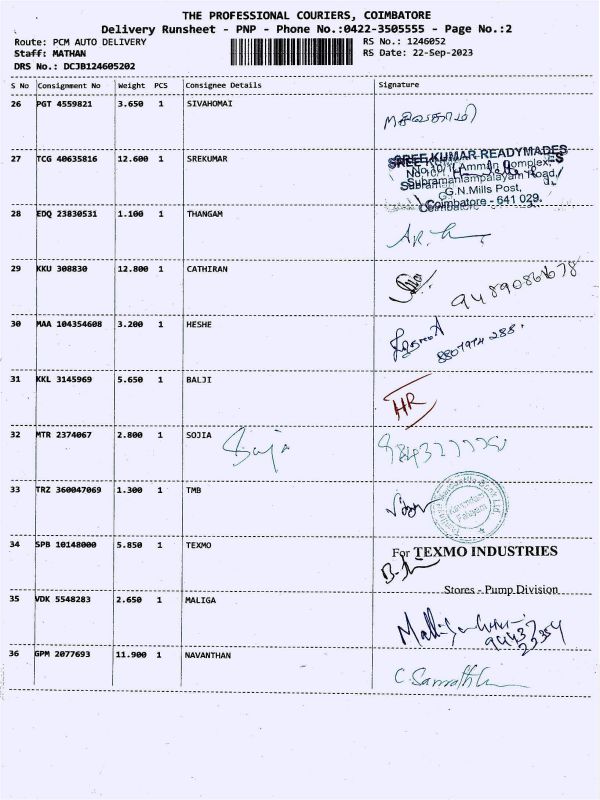 THE PROFESSIONAL COURIERS, COIMBATORE
Delivery Runsheet - PNP - Phone No.:0422-3505555 - Page No.:2
Route: PCM AUTO DELIVERY
RS No.: 1246052
Staff: MATHAN
RS Date: 22-Sep-2023
DRS No.: DCJB124605202
S No Consignment No Weight PCS Consignee Details Signature
26 PGT 4559821 3.650 1 SIVAHOMAI
27 TCG 40635816 12.600 1 SREKUMAR
SREE KUMAR READYMADES
No.10/1, Amman Complex,
Subramaniampalayam Road,
G.N.Mills Post,
Coimbatore - 641 029.
28 EDQ 23830531 1.100 1 THANGAM
29 KKU 308830 12.800 1 CATHIRAN
30 MAA 104354608 3.200 1 HESHE
31 KKL 3145969 5.650 1 BALJI
HR
32 MTR 2374067 2.800 1 SOJIA
33 TRZ 360047069 1.300 1 TMB
34 SPB 10148000 5.850 1 TEXMO
For TEXMO INDUSTRIES
Stores - Pump Division
35 VDK 5548283 2.650 1 MALIGA
36 GPM 2077693 11.900 1 NAVANTHAN